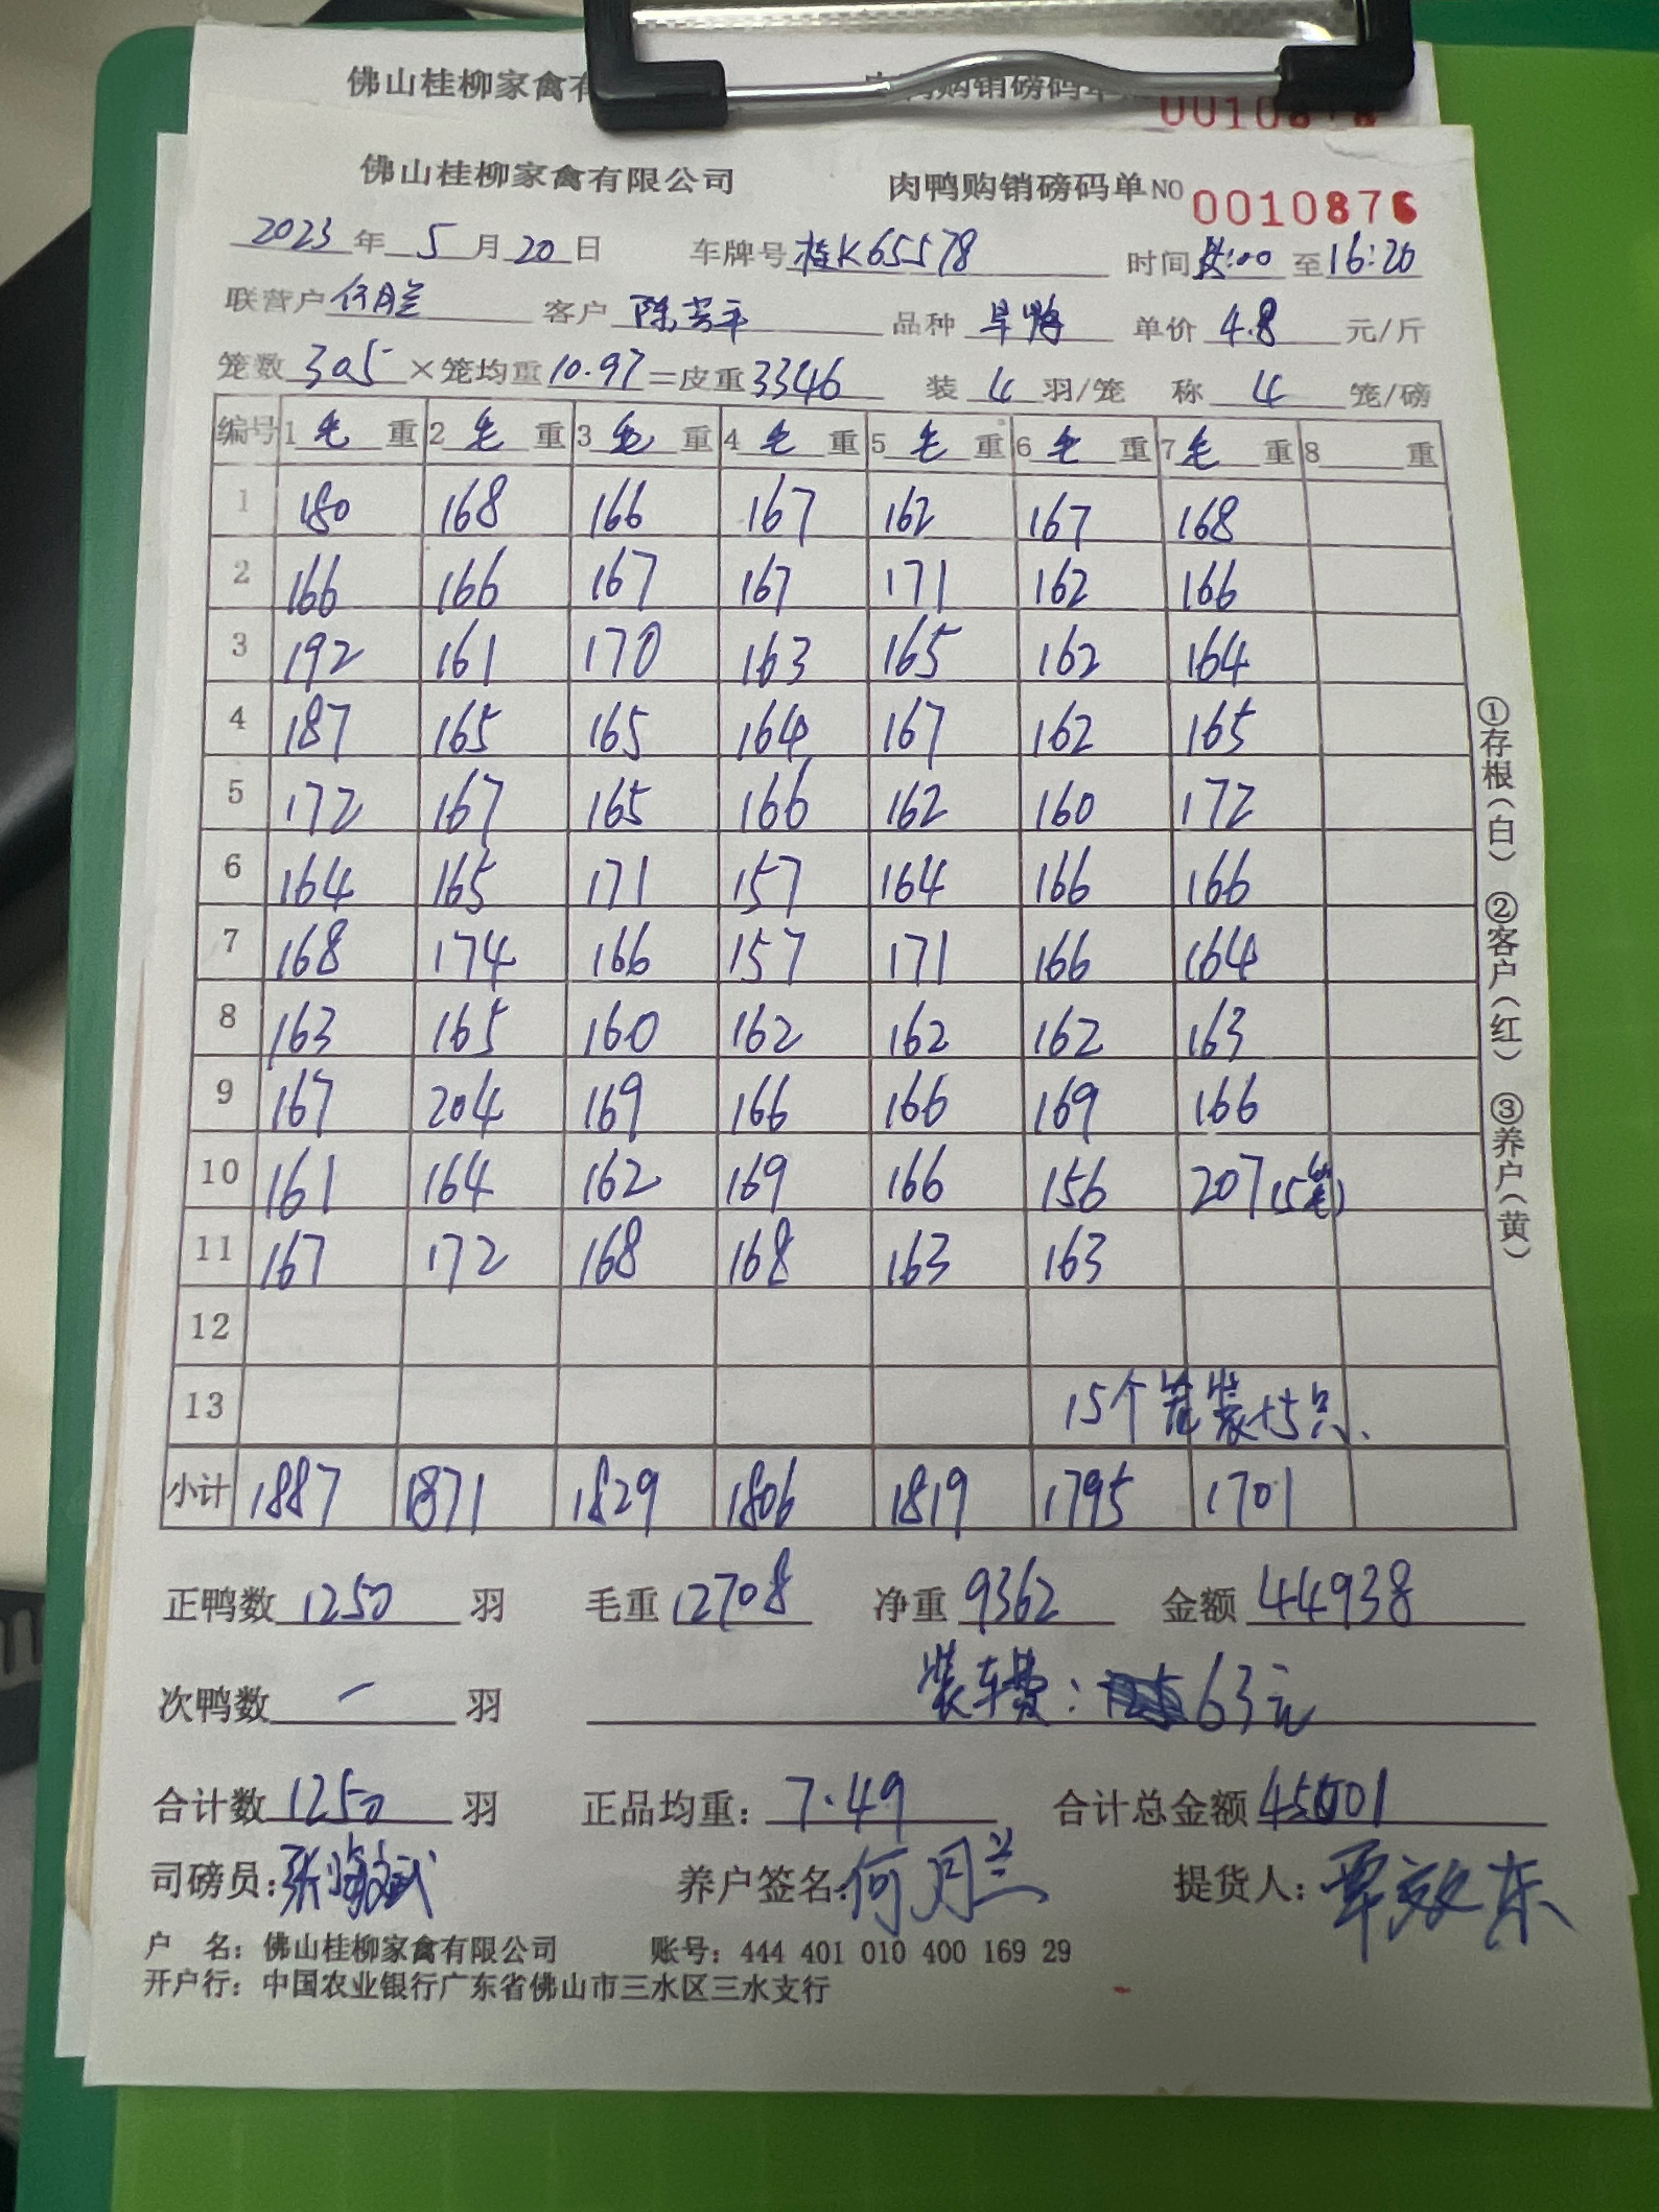 佛山桂柳家禽有
购销磅码单
佛山桂柳家禽有限公司 肉鸭购销磅码单NO 0010876
2023年5月20日 车牌号桂K65578 时间 :00至16:20
联营户何月兰 客户 陈芸平 品种 旱鸭 单价 4.8 元/斤
笼数 305 ×笼均重10.97=皮重3346 装 4 羽/笼 称 4 笼/磅
编号 1毛重 2毛重 3毛重 4毛重 5毛重 6毛重 7毛重 8 重
1 180 168 166 167 162 167 168
2 166 166 167 167 171 162 166
3 192 161 170 163 165 162 164
4 187 165 165 164 167 162 165
5 172 167 165 166 162 160 172
6 164 165 171 157 164 166 166
7 168 174 166 157 171 166 164
8 163 165 160 162 162 162 163
9 167 204 169 166 166 169 166
10 161 164 162 169 166 156 207(5笼)
11 167 172 168 168 163 163
12
13 15个笼装+5只.
小计 1887 1871 1829 1806 1819 1795 1701
①存根(白) ②客户(红) ③养户(黄)
正鸭数 1250 羽 毛重 12708 净重 9362 金额 44938
次鸭数 一 羽 装车费: 63元
合计数 1250 羽 正品均重: 7.49 合计总金额 45001
司磅员:张 武 养户签名:何月兰 提货人:覃效东
户 名: 佛山桂柳家禽有限公司 账号: 444 401 010 400 169 29
开户行: 中国农业银行广东省佛山市三水区三水支行